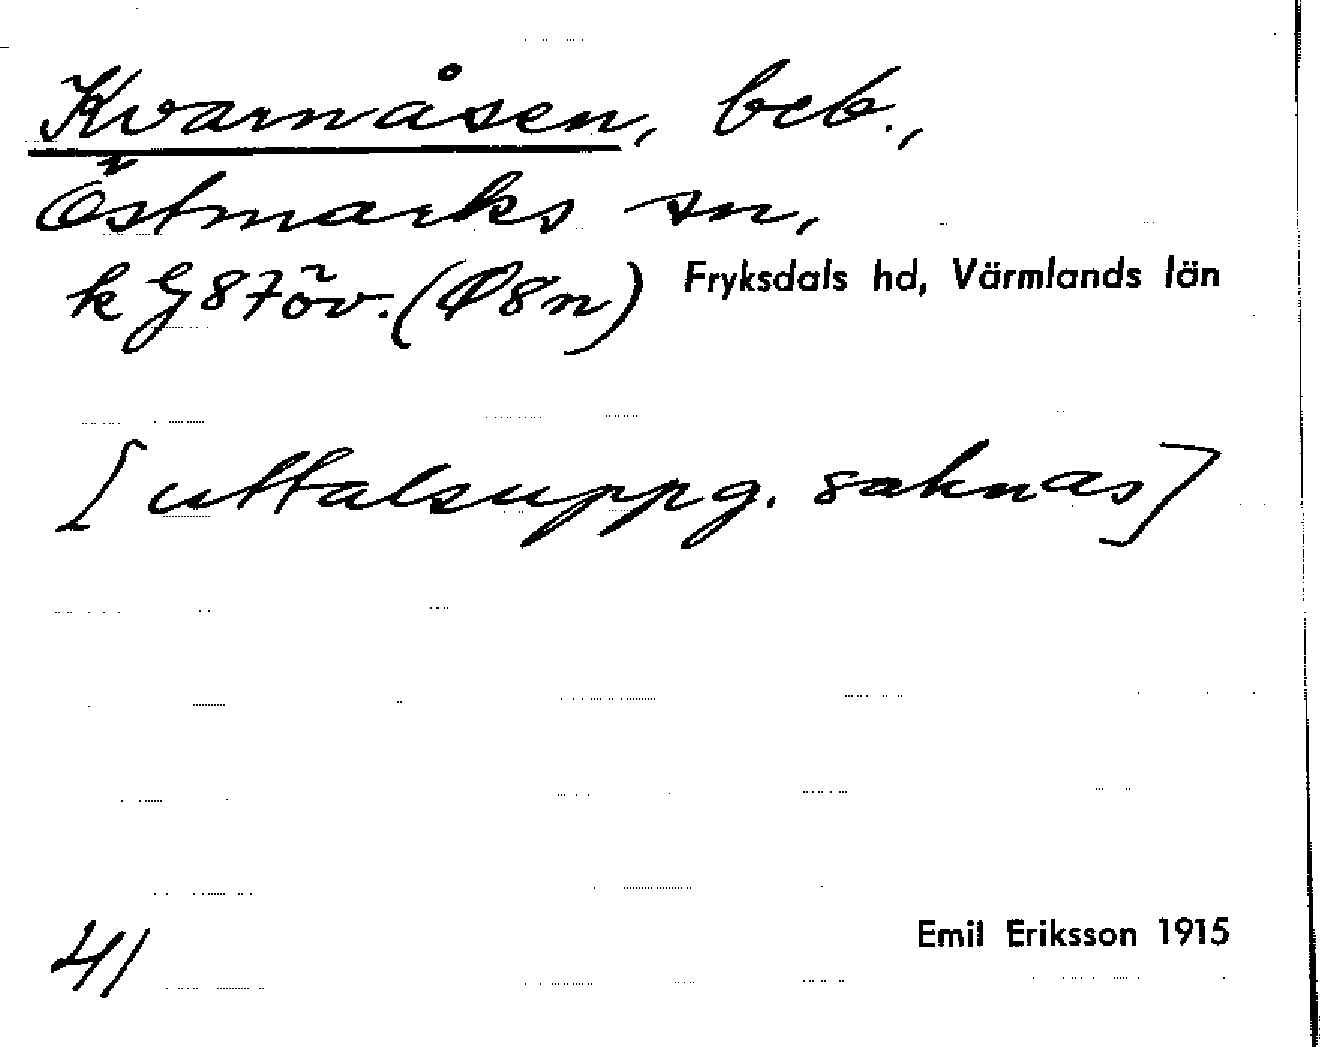 Kvarnåsen, beb.,
Östmarks sn,
k G 87 öv. (Ø8n) Fryksdals hd, Värmlands län
[uttalsuppg. saknas]
41 Emil Eriksson 1915